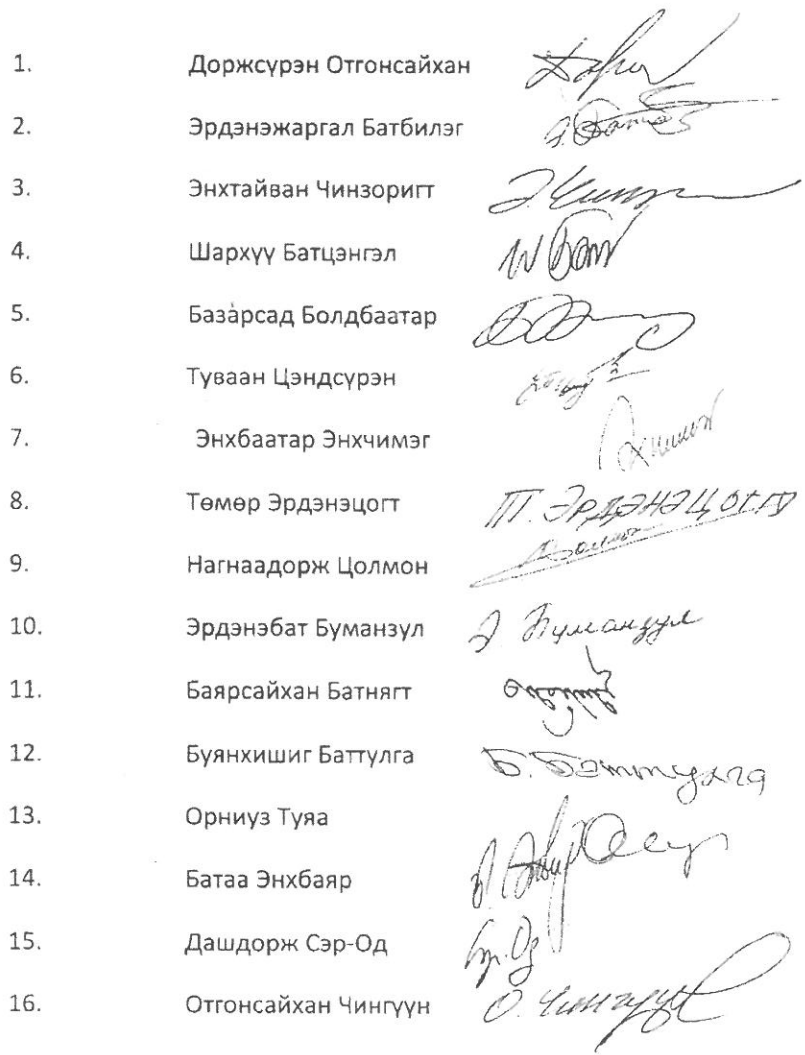 1. Доржсүрэн Отгонсайхан
2. Эрдэнэжаргал Батбилэг
3. Энхтайван Чинзоригт Э.Чинз
4. Шархүү Батцэнгэл Ш Бат
5. Базарсад Болдбаатар
6. Туваан Цэндсүрэн
7. Энхбаатар Энхчимэг
8. Төмөр Эрдэнэцогт Т. ЭРДЭНЭЦОГТ
9. Нагнаадорж Цолмон Цолмон
10. Эрдэнэбат Буманзул Э Буманзул
11. Баярсайхан Батнягт
12. Буянхишиг Баттулга Б. Баттулга
13. Орниуз Туяа
14. Батаа Энхбаяр
15. Дашдорж Сэр-Од Сэр.Од
16. Отгонсайхан Чингүүн О. Чингүүн